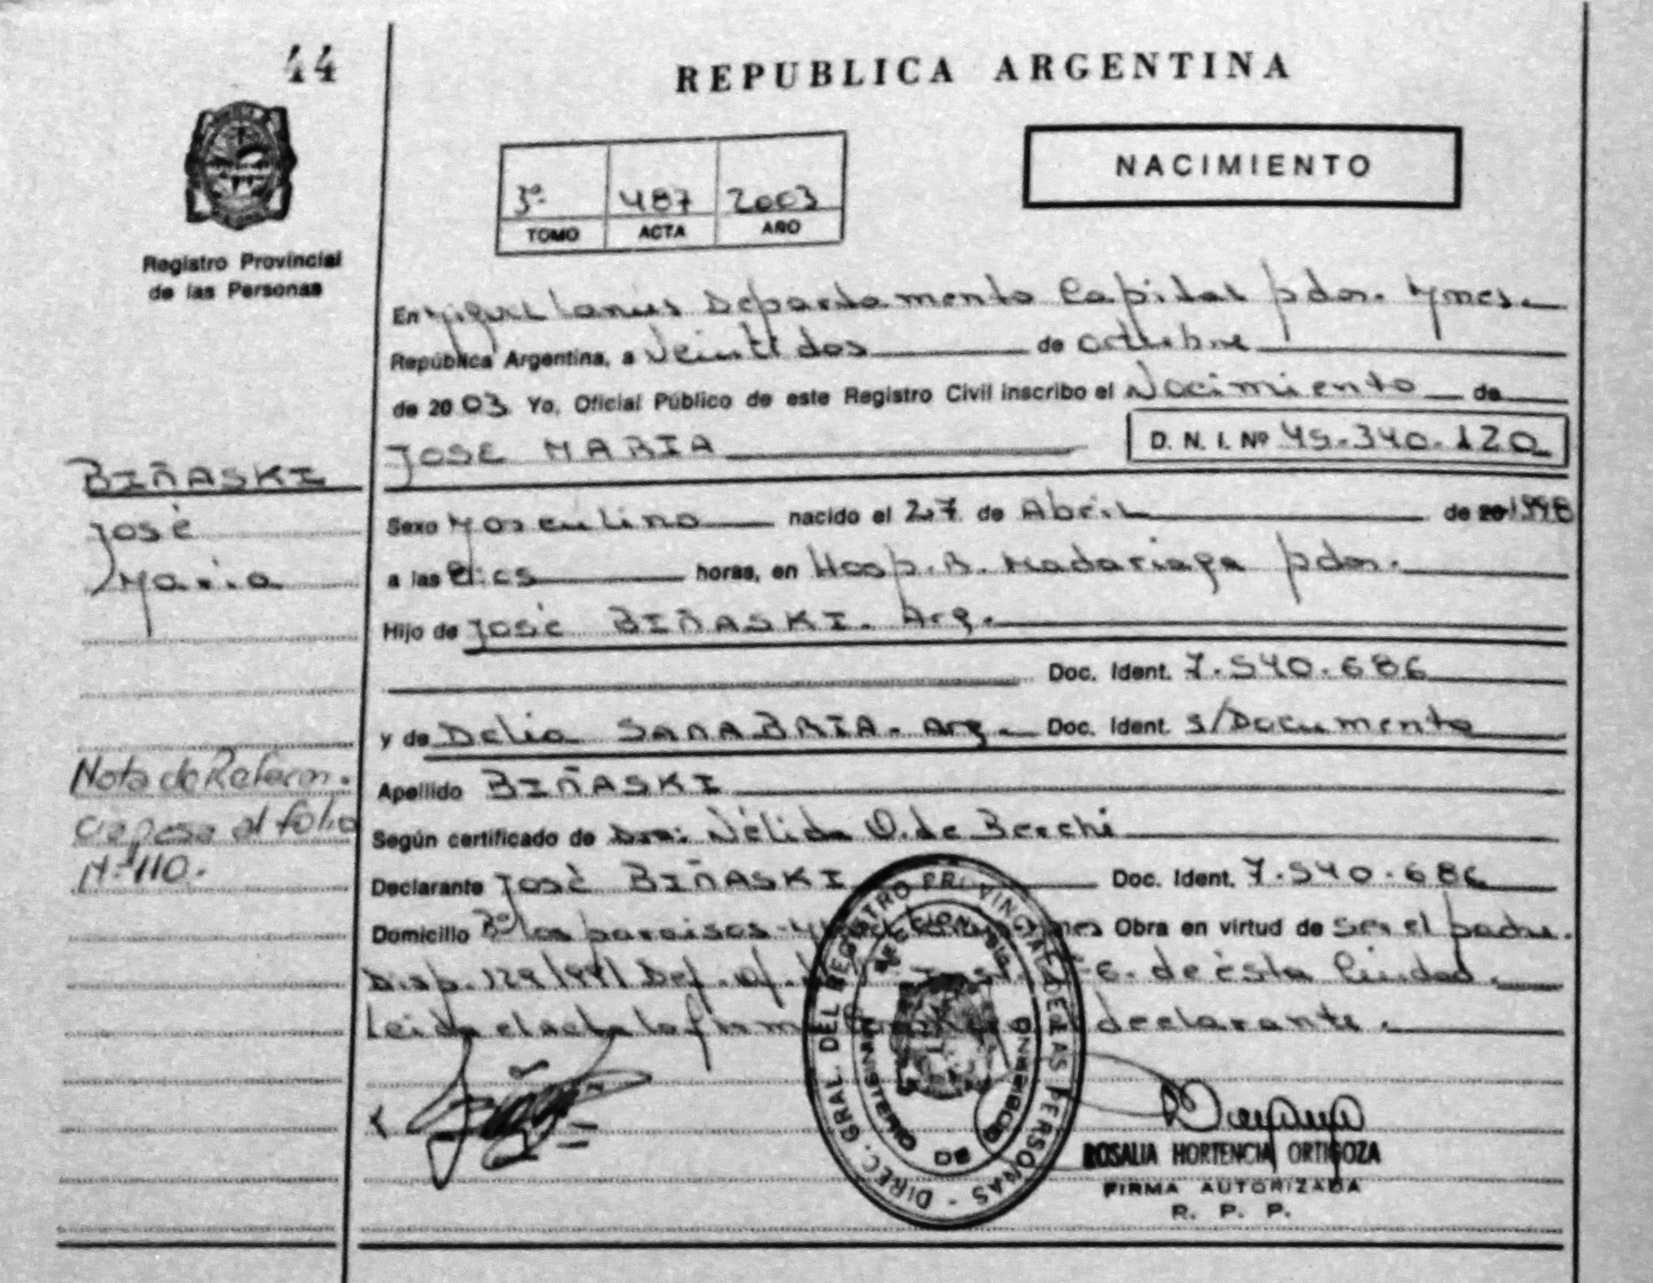 44
REPUBLICA ARGENTINA
NACIMIENTO
3º 487 2003
TOMO ACTA AÑO
Registro Provincial
de las Personas
En Miguel Lanus Departamento Capital pdas. Mnes.
República Argentina, a Veintidos de octubre
de 2003 Yo, Oficial Público de este Registro Civil inscribo el Nacimiento de
JOSE MARIA D. N. I. Nº 45.340.120
BIÑASKI
José
María
Sexo Masculino nacido el 27 de Abril de 20 1998
a las horas, en Hosp. R. Madariaga pdas.
Hijo de José BIÑASKI. Arg.
Doc. Ident. 7.540.686
y de Delia SANABRIA. Arg. Doc. Ident. s/Documento
Apellido BIÑASKI
Según certificado de Dra: Nélida O. de Berchi
Declarante José BIÑASKI Doc. Ident. 7.540.686
Domicilio Bº los paraisos Obra en virtud de ser el padre.
Disp. Def. Of. de ésta Ciudad.
Leida el acta la firma declarante.
Nota de Referen-
cia pasa al folio
Nº 110.
DIREC. GRAL. DEL REGISTRO PROVINCIAL DE LAS PERSONAS
MINISTERIO DE GOBIERNO
MISIONES
ROSALIA HORTENCIA ORTIGOZA
FIRMA AUTORIZADA
R. P. P.